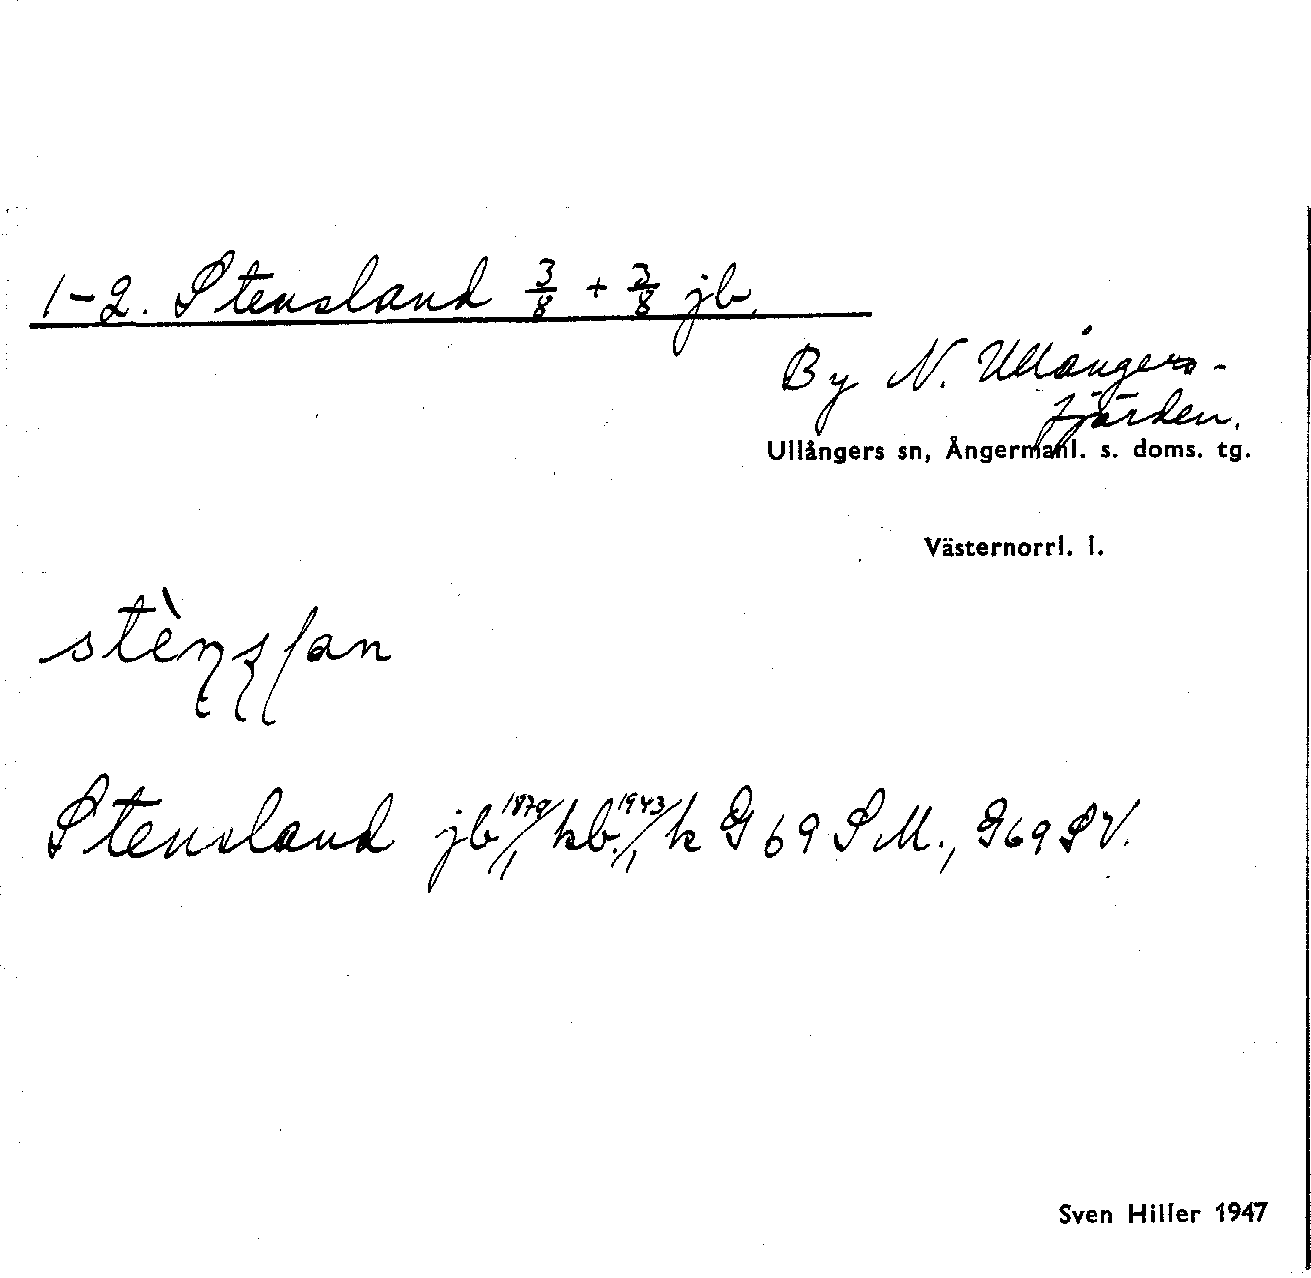 1-2. Stensland 3/8 + 3/8 jb.
By N. Ullångers-
fjärden.
Ullångers sn, Ångermanl. s. doms. tg.
Västernorrl. l.
Stensland jb 1879/ kb. 1943/ k G 69 SM., G 69 SV.
Sven Hiller 1947